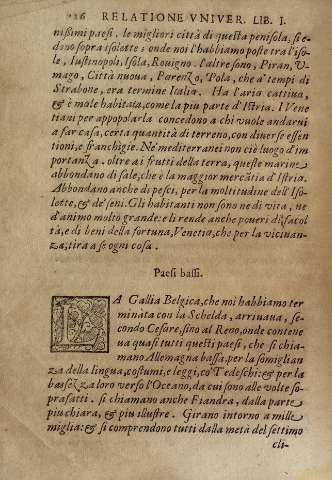 226 RELATIONE VNIVER. LIB. I.
nissimi paesi. le migliori città di questa penisola, si ve-
dono sopra isolette: onde noi l'habbiamo poste tra l'iso-
le, Iustinopoli, Isola, Rouigno. l'altre sono, Piran, V-
mago, Città nuoua, Porenzo, Pola, che a' tempi di
Strabone, era termine Italia. Ha l'aria cattiua,
& è male habitata, come la piu parte d'Istria. I Vene
tiani per appopolarla concedono a chi vuole andarui
a far casa, certa quantità di terreno, con diuerse essen
tioni, e franchigie. Ne' mediterranei non ciè luogo d'im
portanza. oltre ai frutti della terra, queste marine
abbondano di sale, che è la maggior mercãtia d'Istria.
Abbondano anche di pesci, per la moltitudine dell'Iso-
lette, & de' seni. Gli habitanti non sono ne di vita, ne
d'animo molto grande: e li rende anche poueri di facol
tà, e di beni della fortuna, Venetia, che per la vicinan-
za, tira a se ogni cosa.
Paesi bassi.
LA Gallia Belgica, che noi habbiamo ter
minata con la Schelda, arriuaua, se-
condo Cesare, sino al Reno, onde contene
ua quasi tutti questi paesi, che si chia-
mano Allemagna bassa, per la somiglian
za della lingua, costumi, e leggi, co' Tedeschi: & per la
bassezza loro verso l'Oceano, da cui sono alle volte so-
prafatti. si chiamano anche Fiandra, dalla parte
piu chiara, & piu illustre. Girano intorno a mille
miglia: & si comprendono tutti dalla metà del settimo
cli-